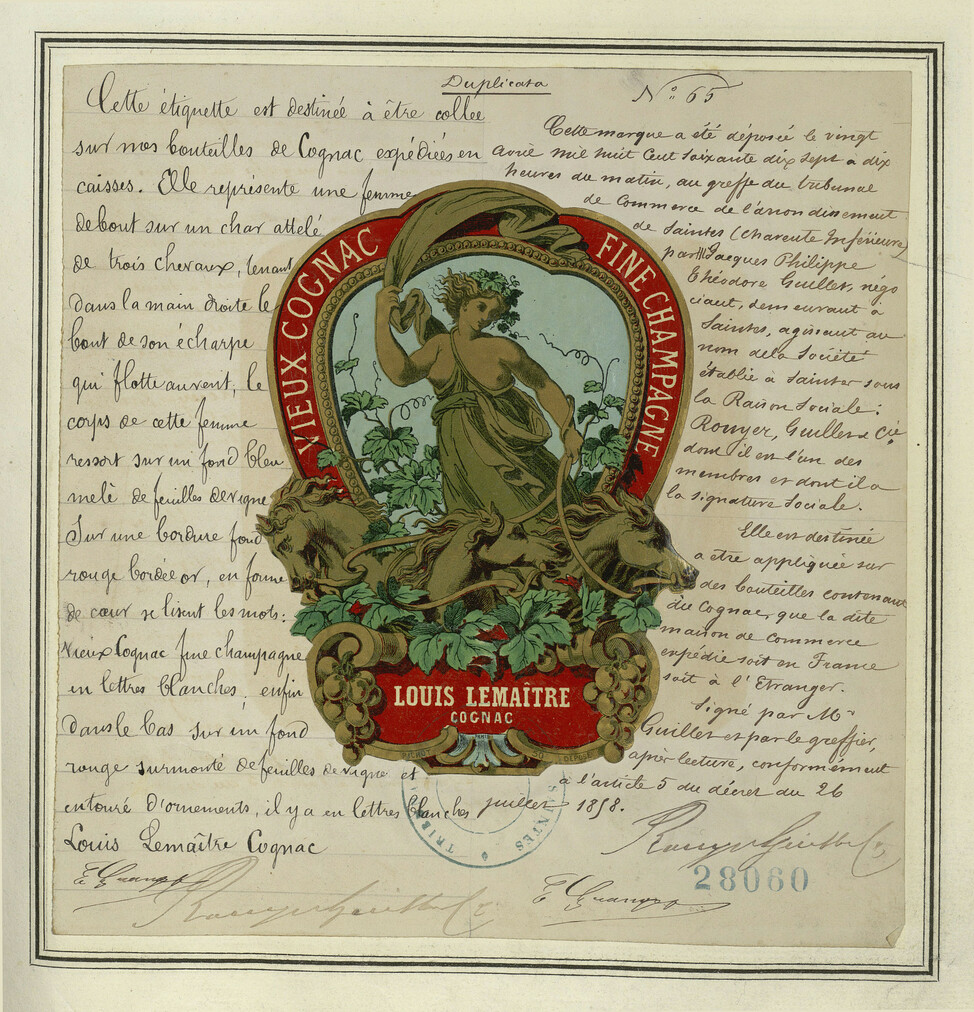 Duplicata
Cette étiquette est destinée à être collée
sur nos bouteilles de Cognac expédiées en
caisses. Elle représente une femme
debout sur un char attelé
de trois chevaux, tenant
dans la main droite le
bout de son écharpe
qui flotte au vent, le
corps de cette femme
ressort sur un fond bleu
mêlé de feuilles de vigne
Sur une bordure fond
rouge bordée or, en forme
de cœur se lisent les mots:
Vieux Cognac fine champagne
en lettres blanches, enfin
dans le bas sur un fond
rouge surmonté de feuilles de vigne et
entouré d'ornements, il y a en lettres blanches
Louis Lemaître Cognac
N° 65
Cette marque a été déposée le vingt
avril mil huit cent soixante dix sept à dix
heures du matin, au greffe du tribunal
de Commerce de l'arrondissement
de Saintes (Charente Inférieure)
par M Jacques Philippe
Théodore Guillet, négo
ciant, demeurant à
Saintes, agissant au
nom de la Société
établie à Saintes sous
la Raison Sociale:
Rouyer, Guillet & Cie
dont il est l'un des
membres et dont il a
la signature Sociale.
Elle est destinée
a être appliquée sur
des bouteilles contenant
du Cognac que la dite
maison de commerce
expédie soit en France
soit à l'Etranger.
Signé par Mr
Guillet et par le greffier,
après lecture, conformément
à l'article 5 du décret du 26
juillet 1858.
VIEUX COGNAC
FINE CHAMPAGNE
LOUIS LEMAÎTRE
COGNAC
PARIS
DÉPOSÉ
SAINTES
Rouyer Guillet & Cie
28060
Rouyer Guillet & Cie